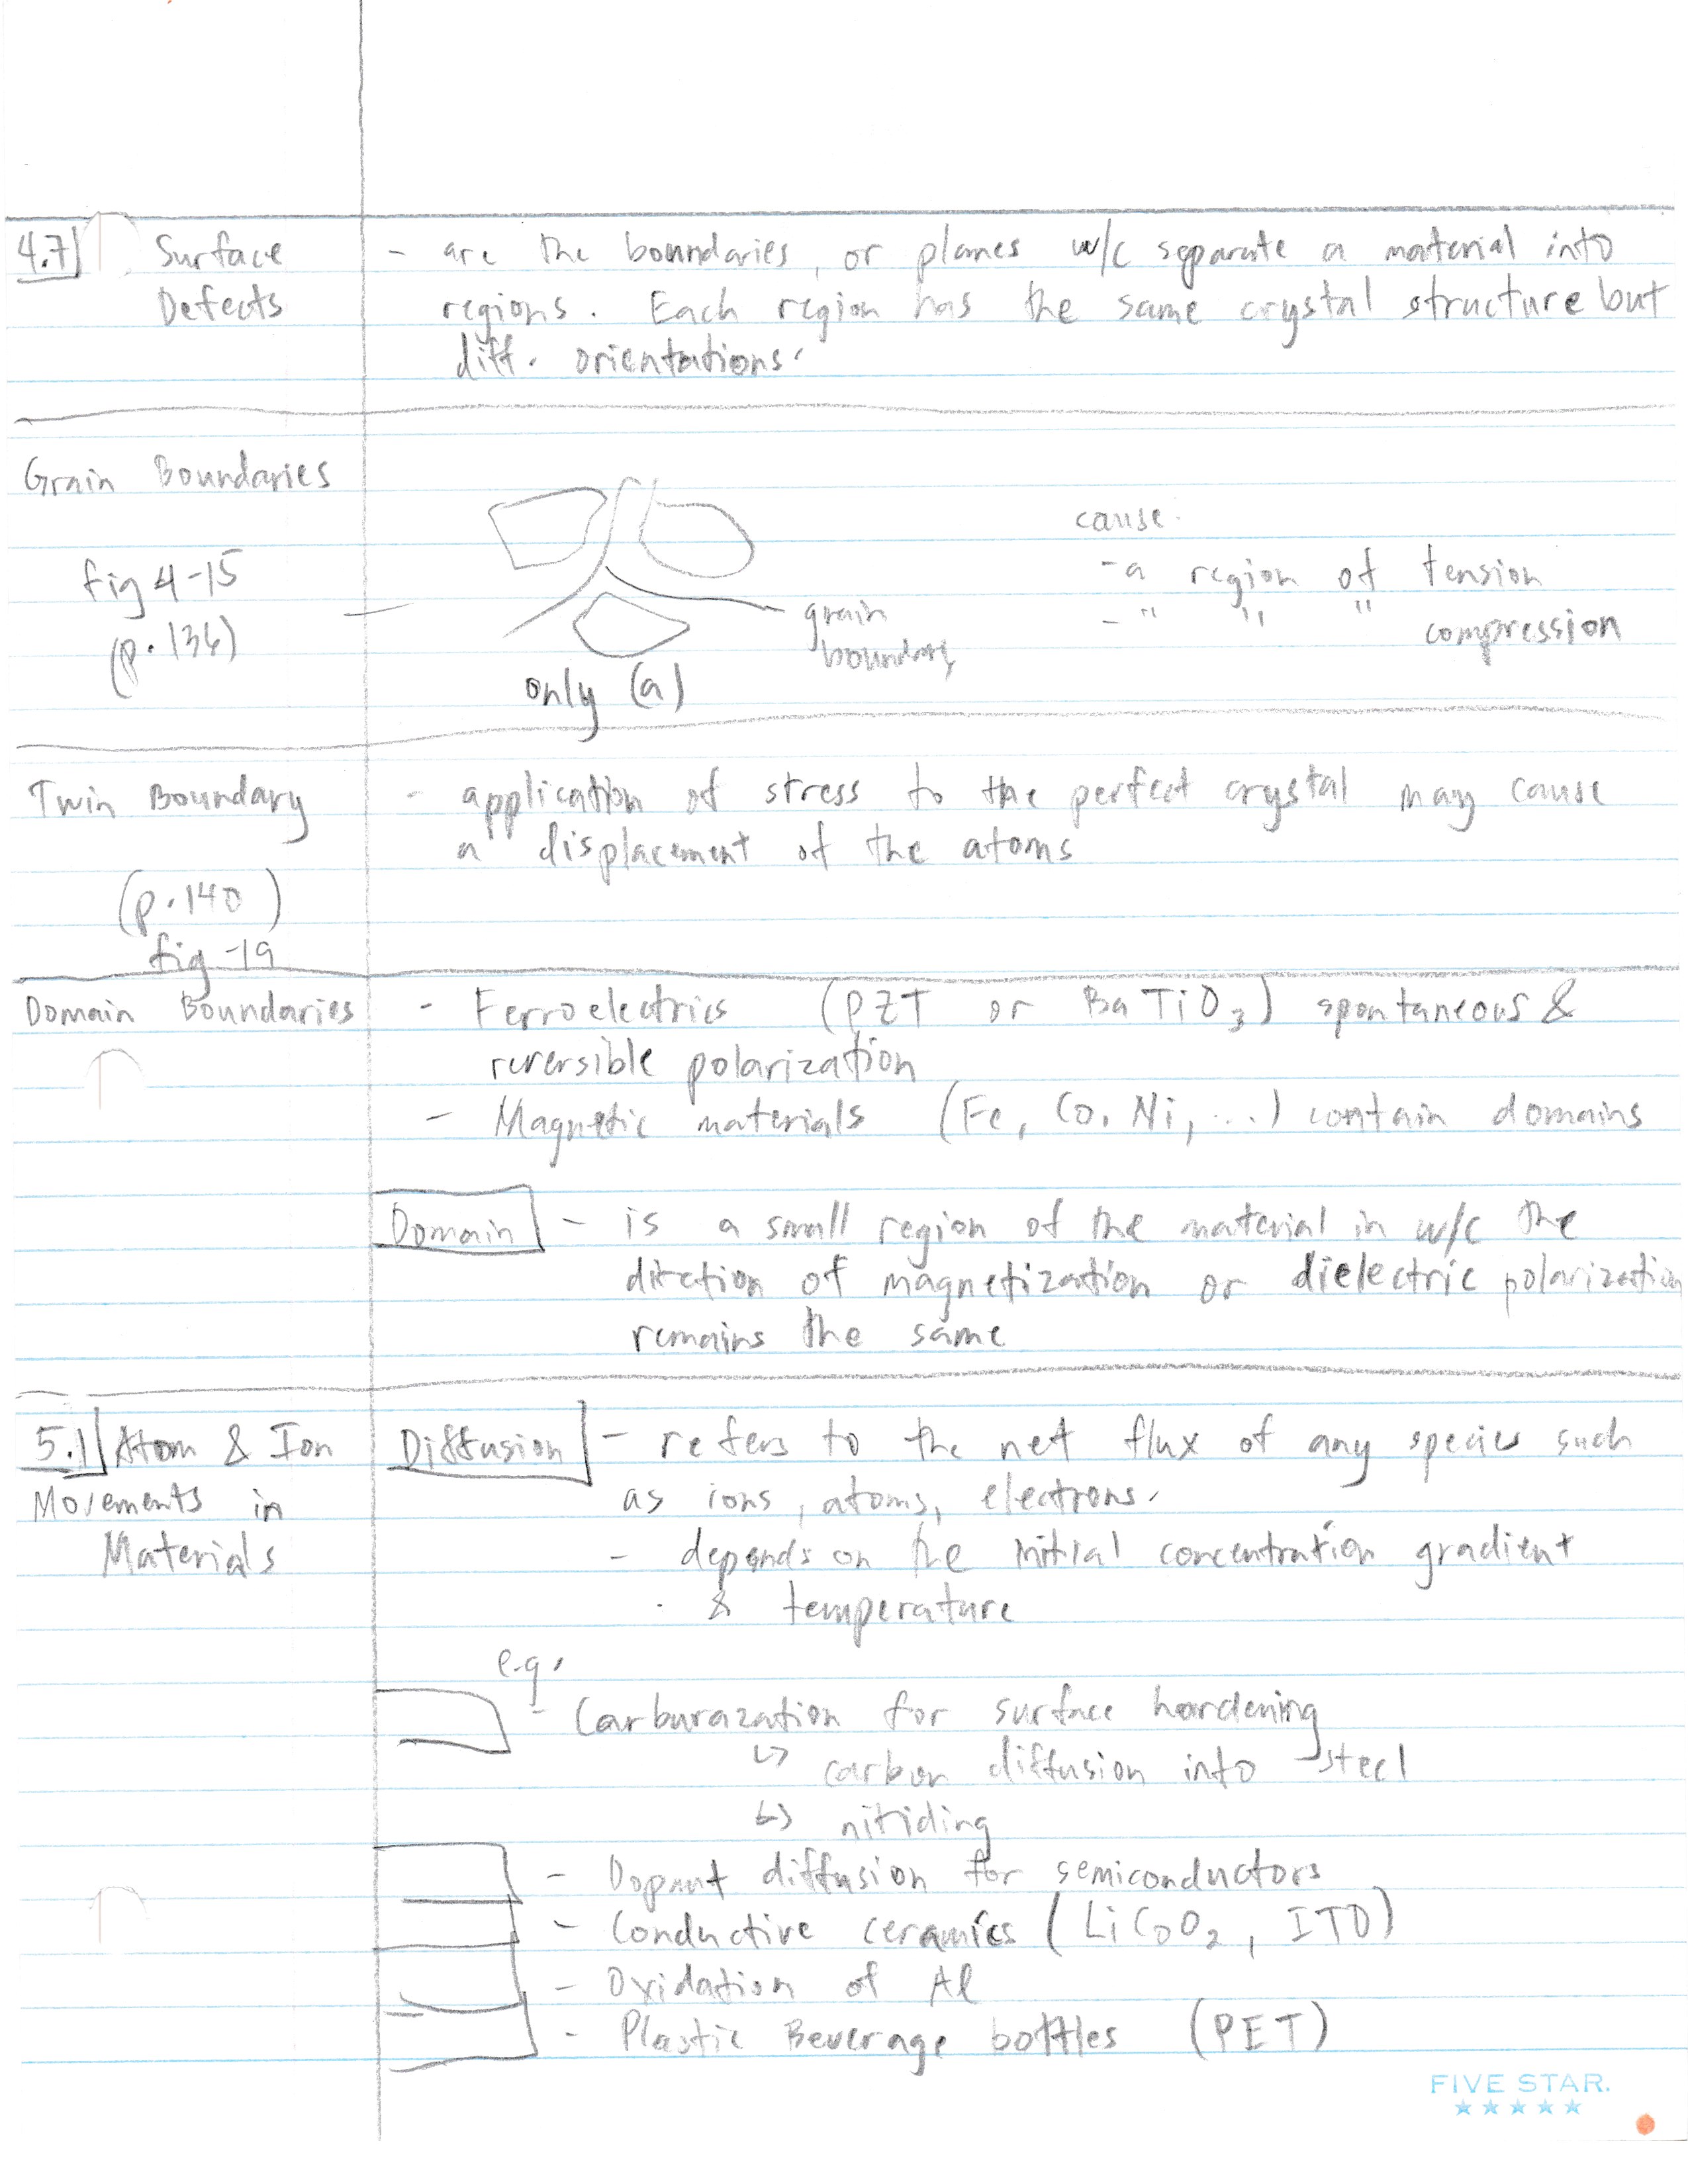 4.7 Surface Defects
- are the boundaries, or planes w/c separate a material into
regions. Each region has the same crystal structure but
diff. orientations.
Grain Boundaries
fig 4-15
(p. 136)
grain
boundary
only (a)
cause.
- a region of tension
- " " " compression
Twin Boundary
(p. 140)
fig -19
- application of stress to the perfect crystal may cause
a displacement of the atoms
Domain Boundaries
- Ferroelectrics (PZT or BaTiO3) spontaneous &
reversible polarization
- Magnetic materials (Fe, Co, Ni, ...) contain domains
Domain - is a small region of the material in w/c the
diretion of magnetization or dielectric polarization
remains the same
5.1 Atom & Ion
Movements in
Materials
Diffusion - refers to the net flux of any species such
as ions, atoms, electrons.
- depends on the initial concentration gradient
& temperature
e.g.
- Carburazation for surface hardening
↳ carbon diffusion into steel
↳ nitiding
- Dopant diffusion for semiconductors
- Conductive ceramics (LiCoO2, ITO)
- Oxidation of Al
- Plastic Beverage bottles (PET)
FIVE STAR.